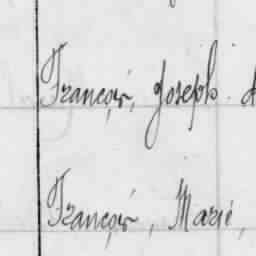 François, Joseph.
François, Marie,